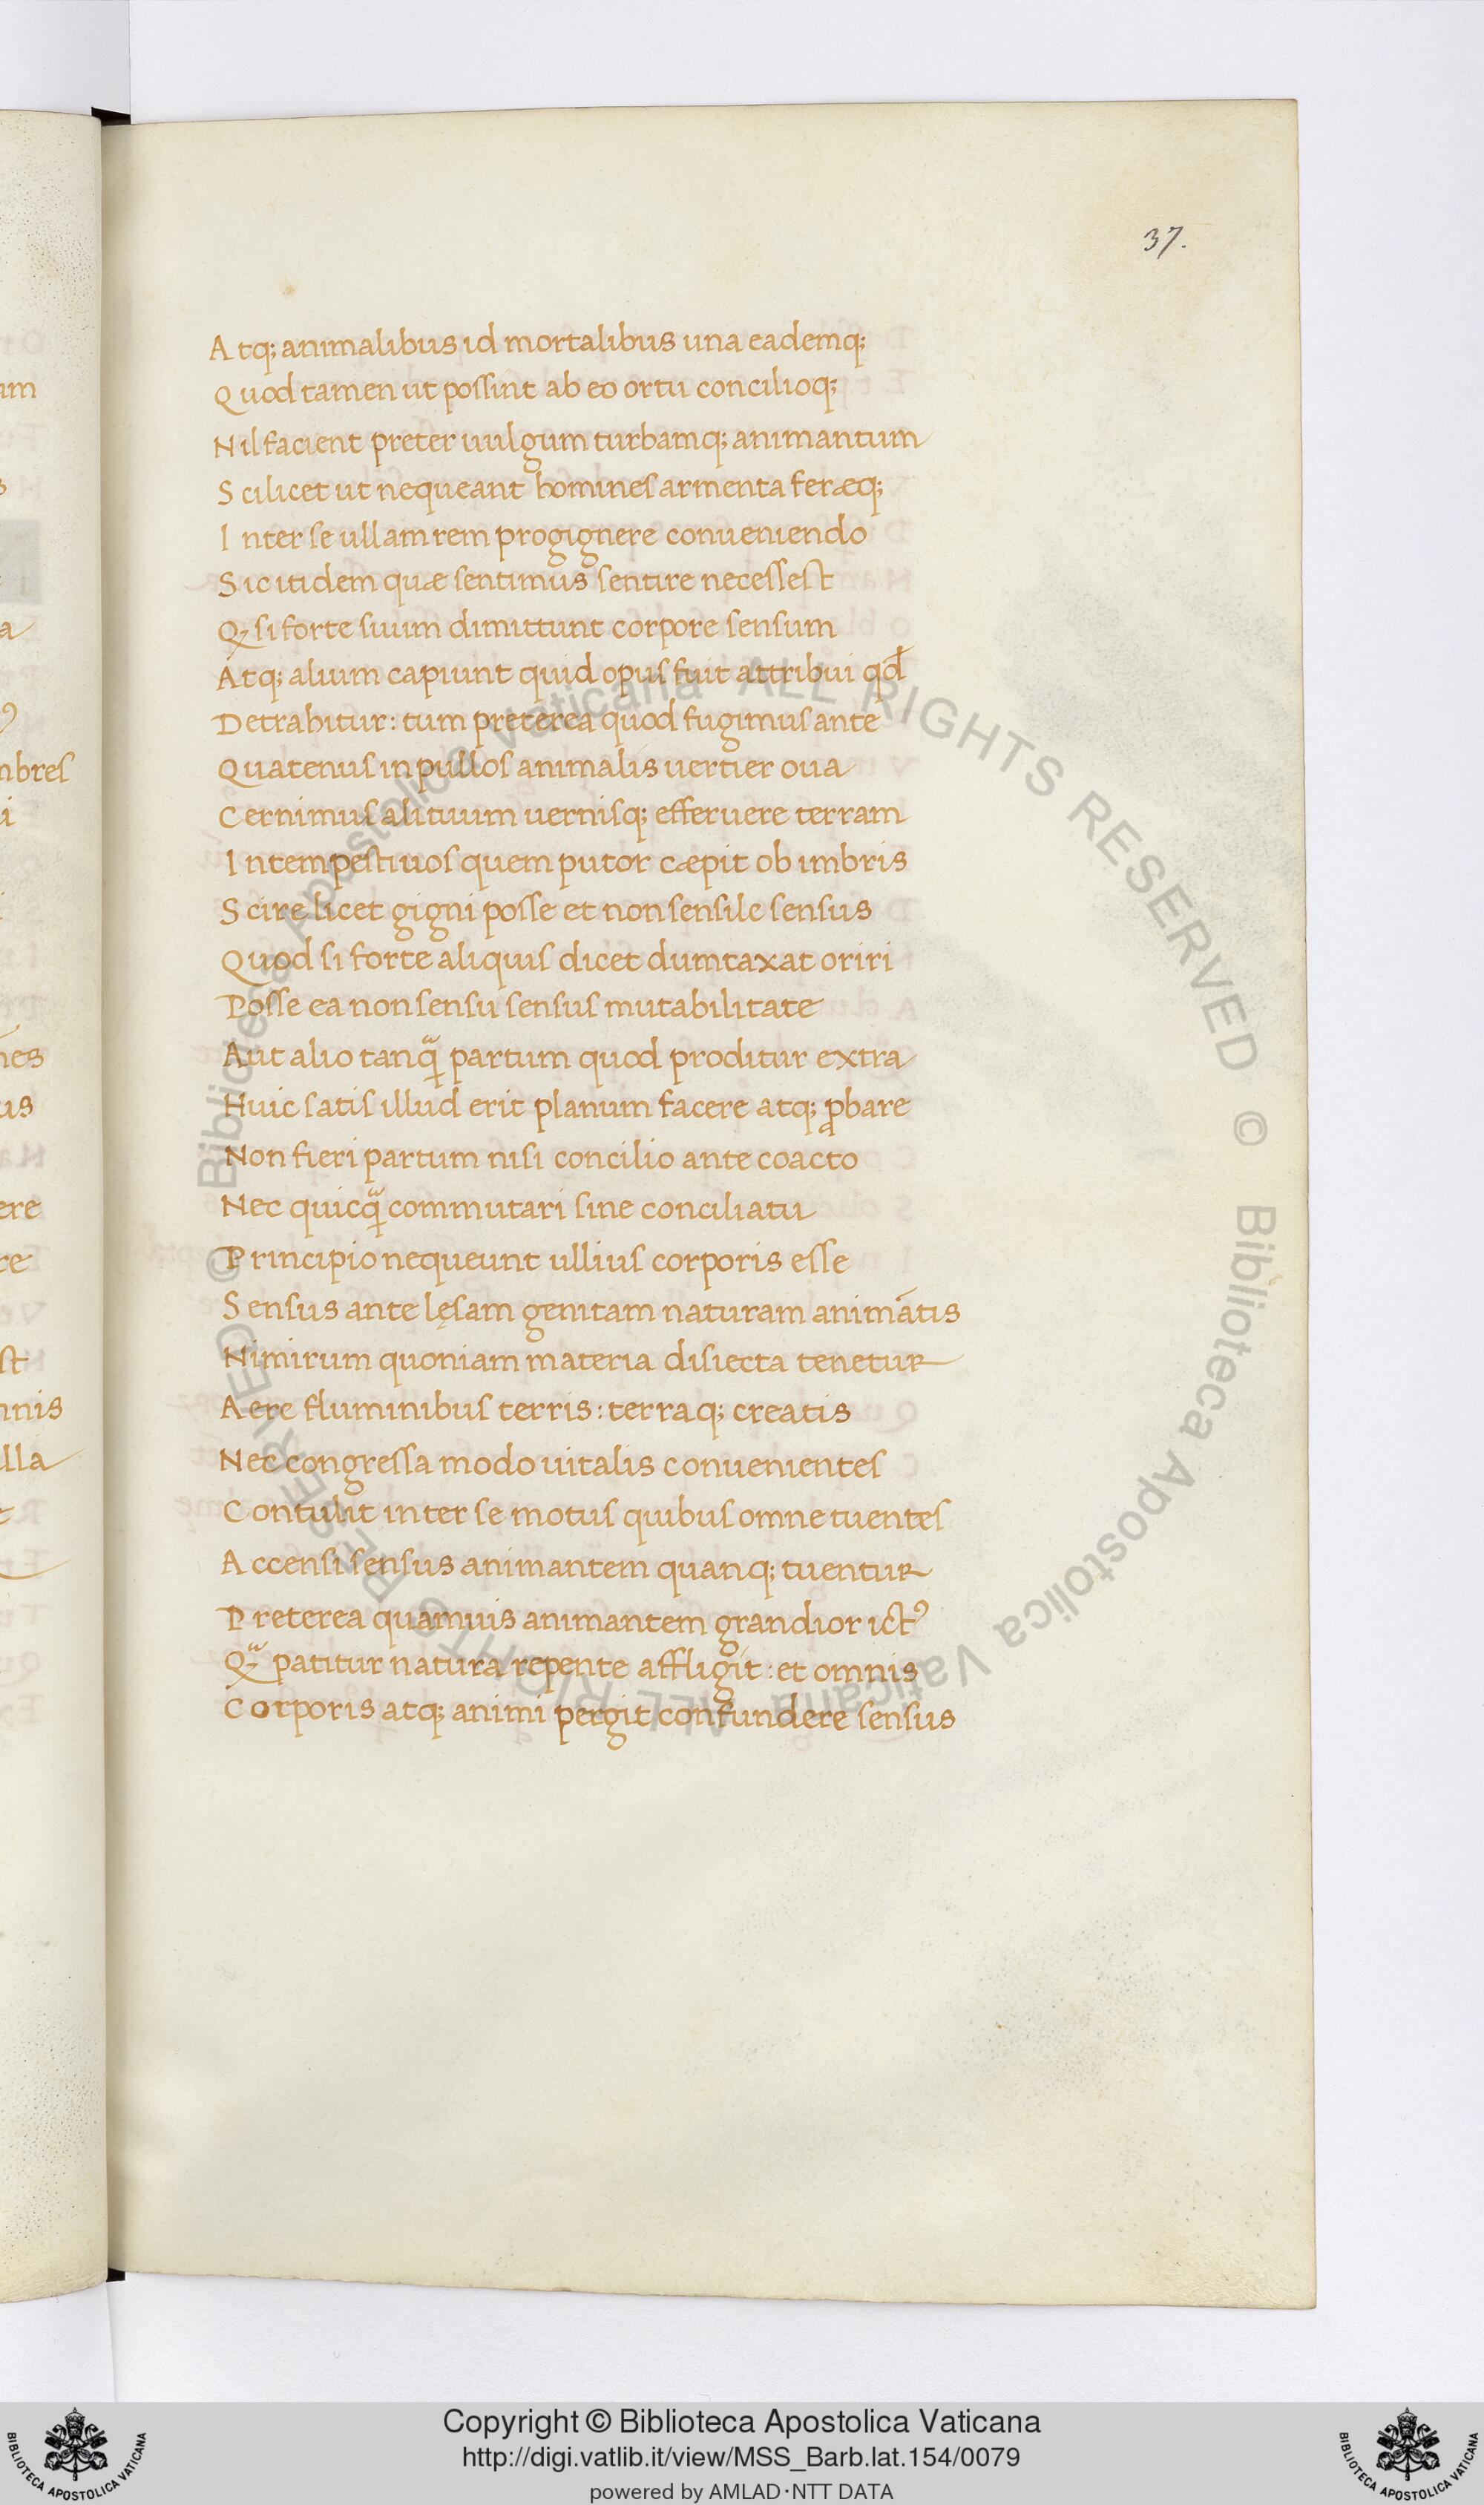 37.
Atq; animalibus id mortalibus una eademq;
Quod tamen ut possint ab eo ortu concilioq;
Nil facient preter uulgum turbamq; animantum
Scilicet ut nequeant homines armenta feræq;
Inter se ullam rem progignere conueniendo
Sic itidem quæ sentimus sentire necessest
Qꝫ si forte suum dimittunt corpore sensum
Atq; alium capiunt quid opus fuit attribui qđ
Detrahitur: tum preterea quod fugimus ante
Quatenus in pullos animalis uertier oua
Cernimus alituum uernisq; efferuere terram
Intempestiuos quem putor cæpit ob imbris
Scire licet gigni posse et non sensile sensus
Quod si forte aliquis dicet dumtaxat oriri
Posse ea non sensu sensus mutabilitate
Aut alio tanq̃ partum quod proditur extra
Huic satis illud erit planum facere atq; ꝓbare
Non fieri partum nisi concilio ante coacto
Nec quicq̃ commutari sine conciliatu
Principio nequeunt ullius corporis esse
Sensus ante lęsam genitam naturam animātis
Nimirum quoniam materia disiecta tenetur
Aere fluminibus terris: terraq; creatis
Nec congressa modo uitalis conuenientes
Contulit inter se motus quibus omne tuentes
Accensi sensus animantem quanq; tuentur
Preterea quamuis animantem grandior ictꝰ
Qꝫ̃ patitur natura repente affligit: et omnis
Corporis atq; animi pergit confundere sensus
© Biblioteca Apostolica Vaticana ALL RIGHTS RESERVED © Biblioteca Apostolica Vaticana ALL RIGHTS RESERVED
Copyright © Biblioteca Apostolica Vaticana
http://digi.vatlib.it/view/MSS_Barb.lat.154/0079
powered by AMLAD·NTT DATA
BIBLIOTECA APOSTOLICA VATICANA
BIBLIOTECA APOSTOLICA VATICANA